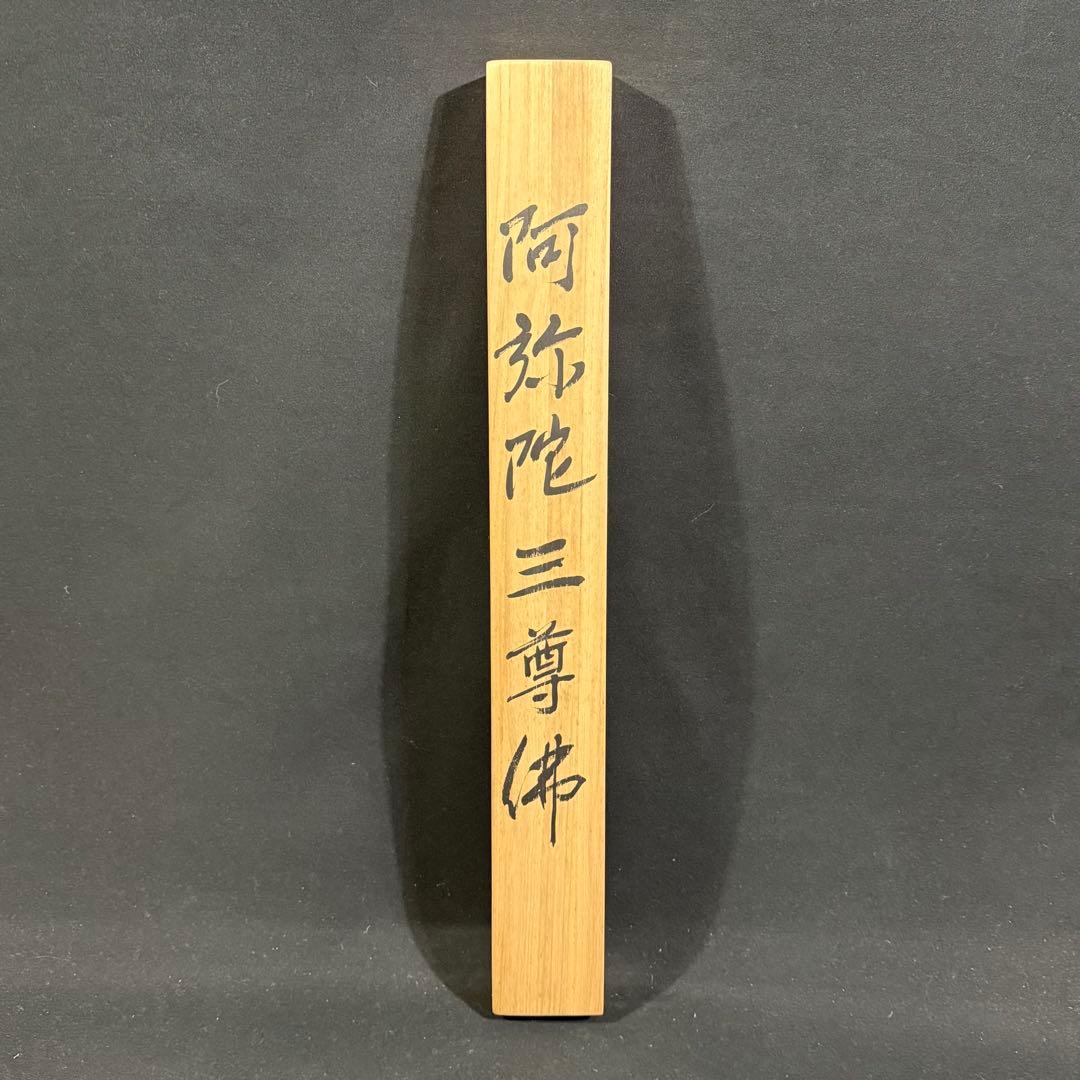 阿弥陀三尊佛